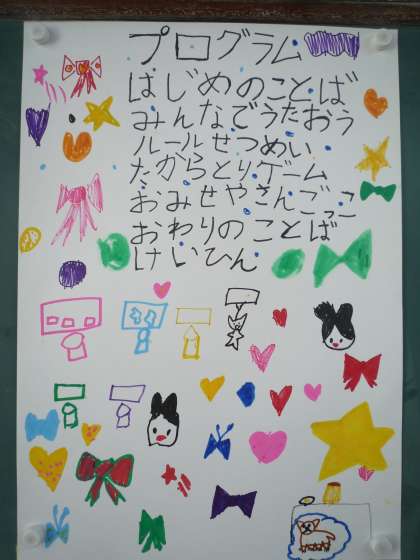 プログラム
はじめのことば
みんなでうたおう
ルールせつめい
たからとりゲーム
おみせやさんごっこ
おわりのことば
けいひん